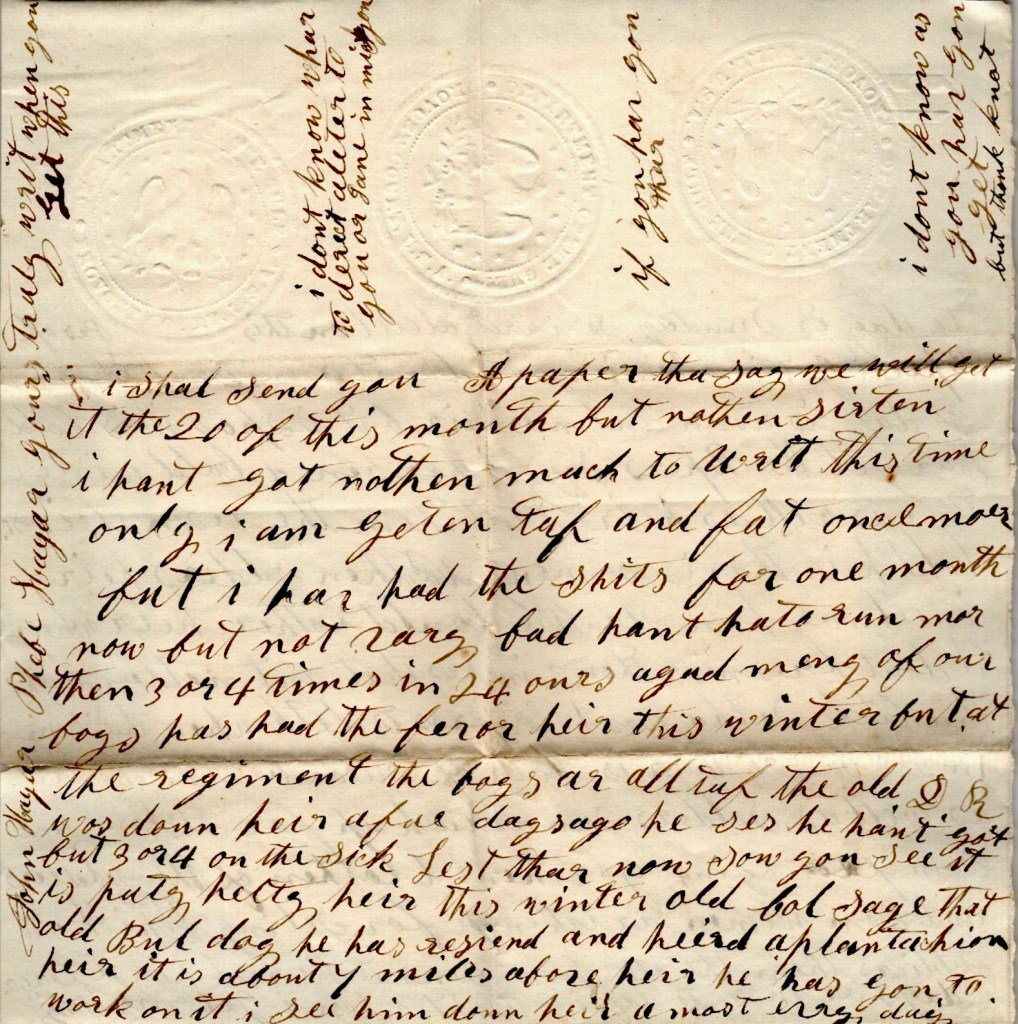 i shal send you A paper tha say we will get
it the 20 of this month but nothen sirten
i hant got nothen much to writ this time
only i am geten tuf and fat once moer
but i hav had the shits for one month
now but not varry bad hant hato run mor
then 3 or 4 times in 24 ours agud meny of our
boys has had the feror heir this winter but at
the regiment the boys ar all tuf the old D R
was doun heir a fue days ago he ses he hant got
but 3 or 4 on the sick Lest thar now sow you see it
is puty helty heir this winter old bol sage that
old Bul dog he has resiend and heird a plantachion
heir it is about 7 miles abore heir he has gon to
work on it i see him doun heir a most evry day
John Hayar Phebe Hayar yours truly writ when you
get this
i dont know whar
to derect a leter to
you or Jane in mis you
if you hav gon
thar
i dont know as
you hav gon
get
but think knot